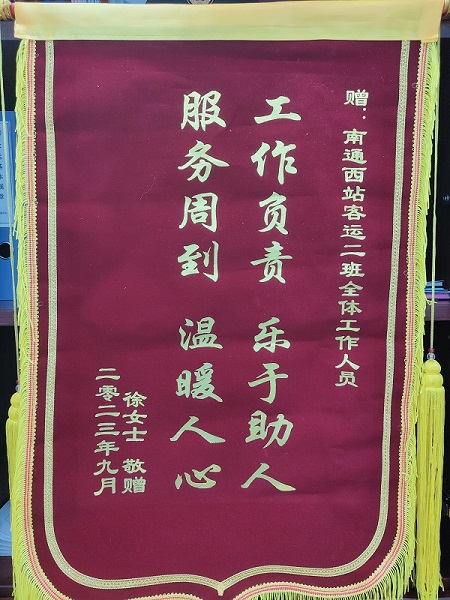 赠：南通西站客运二班全体工作人员
工作负责 乐于助人
服务周到 温暖人心
徐女士 敬赠
二零二三年九月